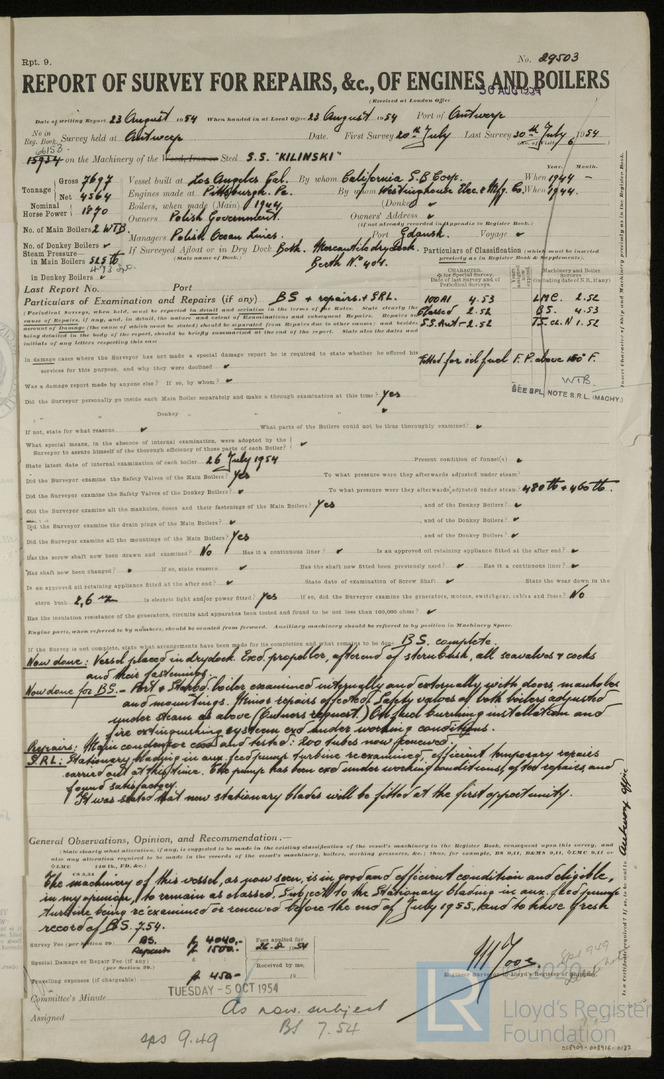 Rpt. 9.
No. 29503
REPORT OF SURVEY FOR REPAIRS, &c., OF ENGINES AND BOILERS
30 AUG 1954
(Received at London Office
Date of writing Report 23 August 1954 When handed in at Local Office 23 August 1954 Port of Antwerp
No in Reg. Book. Survey held at Antwerp Date. First Survey 20th July Last Survey 30th July 1954
6153
(No. of Visits 6)
15934 on the Machinery of the Wood, Iron or Steel S.S. "KILINSKI"
Tonnage Gross 7697 Vessel built at Los Angeles Cal. By whom California S.B. Corp. When 1944 –
Year. Month.
Net 4564 Engines made at Pittsburgh. Pa. By whom Westinghouse Elec. & Mfg. Co. When 1944.
Nominal Horse Power 1870 Boilers, when made (Main) 1944 (Donkey)
Owners Polish Government. Owners' Address
(if not already recorded in Appendix to Register Book.)
No. of Main Boilers 2 WTB. Managers Polish Ocean Lines. Port Gdansk. Voyage
No. of Donkey Boilers
Steam Pressure in Main Boilers 525 lb If Surveyed Afloat or in Dry Dock Both. Mercantile drydock.
(State name of Dock.) Berth No 404.
in Donkey Boilers
Particulars of Classification (which must be inserted precisely as in Register Book & Supplements).
Last Report No. Port
Particulars of Examination and Repairs (if any) BS + repairs + SRL.
CHARACTER. & for Special Survey, Date of last Survey and of Periodical Surveys.
Machinery and Boiler Surveys (including date of N.B., if any)
100A1 4.53 LMC. 2.52
Classed 2.52 BS. 4.53
S.S.Ant–2.52 TS. ch N 1.52
Fitted for oil fuel F.P. above 150° F.
WTB.
SEE SPL. NOTE S.R.L. (MACHY.)
In damage cases where the Surveyor has not made a special damage report he is required to state whether he offered his
services for this purpose, and why they were declined
Was a damage report made by anyone else? If so, by whom?
Did the Surveyor personally go inside each Main Boiler separately and make a thorough examination at this time? Yes
" " Donkey " "
If not, state for what reasons What parts of the Boilers could not be thus thoroughly examined?
What special means, in the absence of internal examination, were adopted by the Surveyor to assure himself of the thorough efficiency of those parts of each Boiler?
State latest date of internal examination of each boiler 26 July 1954 Present condition of funnel(s)
Did the Surveyor examine the Safety Valves of the Main Boilers? Yes To what pressure were they afterwards adjusted under steam?
Did the Surveyor examine the Safety Valves of the Donkey Boilers? To what pressure were they afterwards adjusted under steam 480 lb + 460 lb.
Did the Surveyor examine all the manholes, doors and their fastenings of the Main Boilers? Yes , and of the Donkey Boilers?
Did the Surveyor examine the drain plugs of the Main Boilers? , and of the Donkey Boilers?
Did the Surveyor examine all the mountings of the Main Boilers? Yes , and of the Donkey Boilers?
Has the screw shaft now been drawn and examined? No Has it a continuous liner? Is an approved oil retaining appliance fitted at the after end?
Has shaft now been changed? If so, state reasons Has the shaft now fitted been previously used? Has it a continuous liner?
Is an approved oil retaining appliance fitted at the after end? State date of examination of Screw Shaft State the wear down in the
stern bush 2,6 m/m Is electric light and/or power fitted? Yes If so, did the Surveyor examine the generators, motors, switchgear, cables and fuses? No
Has the insulation resistance of the generators, circuits and apparatus been tested and found to be not less than 100,000 ohms?
Engine parts, when referred to by numbers, should be counted from forward. Auxiliary machinery should be referred to by position in Machinery Space.
If the Survey is not complete, state what arrangements have been made for its completion and what remains to be done. B.S. complete.
Now done: Vessel placed in drydock. Exd propeller, after end of sternbush, all seavalves & cocks
and their fastenings.
Now done for BS. – Port & Starbd. boiler examined internally and externally, with doors, manholes
and mountings. Minor repairs effected. Safety valves of both boilers adjusted
under steam as above (Owners request.) Oil fuel burning installation and
fire extinguishing system exd under working conditions.
Repairs: Main condenser exd and tested: 200 tubes now renewed.
S.R.L: Stationary blading in aux. feed pump turbine re examined, efficient temporary repairs
carried out at this time. The pump has been exd under working conditions, after repairs, and
found satisfactory.
It was stated that new stationary blades will be fitted at the first opportunity.
General Observations, Opinion, and Recommendation.—
The machinery of this vessel, as now seen, is in good and efficient condition and eligible,
in my opinion, to remain as classed. Subject to the Stationary blading in aux. feed pump
turbine being re'examined or renewed before the end of July 1955, and to have fresh
record of BS. 7.54.
Survey Fee (per Section 29) BS. 4040.- Fees applied for
Repairs 1500.- 26-8 1954
Special Damage or Repair Fee (if any) (per Section 29.) Received by me,
Travelling expenses (if chargeable) 450 –
Engineer Surveyor to Lloyd's Register of Shipping.
Committee's Minute TUESDAY - 5 OCT 1954
Assigned As now. subject
BS 7.54
sps 9.49
Antwerp Office
© 2020
LR
Lloyd's Register
Foundation
008909-008916-0187